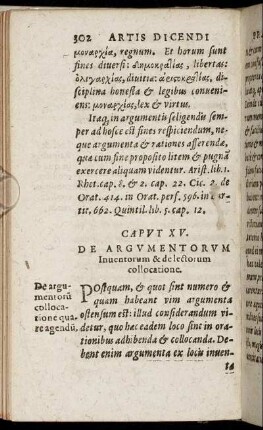 302 ARTIS DICENDI
μοναρχία, regnum. Et horum sunt
fines diuersi: δημοκρατίας, libertas:
ὀλιγαρχίας, diuitiæ: ἀριστοκρατίας, di-
sciplina honesta & legibus conueni-
ens: μοναρχίας, lex & virtus.
Itaq, in argumentis seligendis sem-
per ad hosce est fines respiciendum, ne-
que argumenta & rationes afferendæ,
quæ cum fine proposito litem & pugnā
exercere aliquam videntur. Arist. lib. 1.
Rhet. cap. 8. & 2. cap. 22. Cic. 2. de
Orat. 414. in Orat. pers. 596. in
662. Quintil. lib. 5. cap. 12.
CAPVT XV.
DE ARGVMENTORVM
Inuentorum & delectorum
collocatione.
De argu-
mentorū
colloca-
tione qua-
re agendū.
Postquam, & quot sint numero &
quam habeant vim argumenta
ostensum est: illud considerandum vi-
detur, quo hæc eadem loco sint in orat-
ionibus adhibenda & collocanda. De-
bent enim argumenta ex locis inuen-
ta